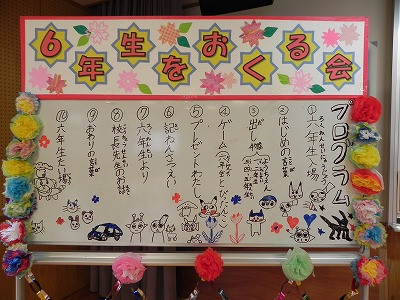 6年生をおくる会
プログラム
①六年生入場
②はじめの言葉
③出し物
④ゲーム
⑤プレゼントわたし
⑥記ねんさつえい
⑦六年生より
⑧校長先生のお話
⑨おわりの言葉
⑩六年生たい場